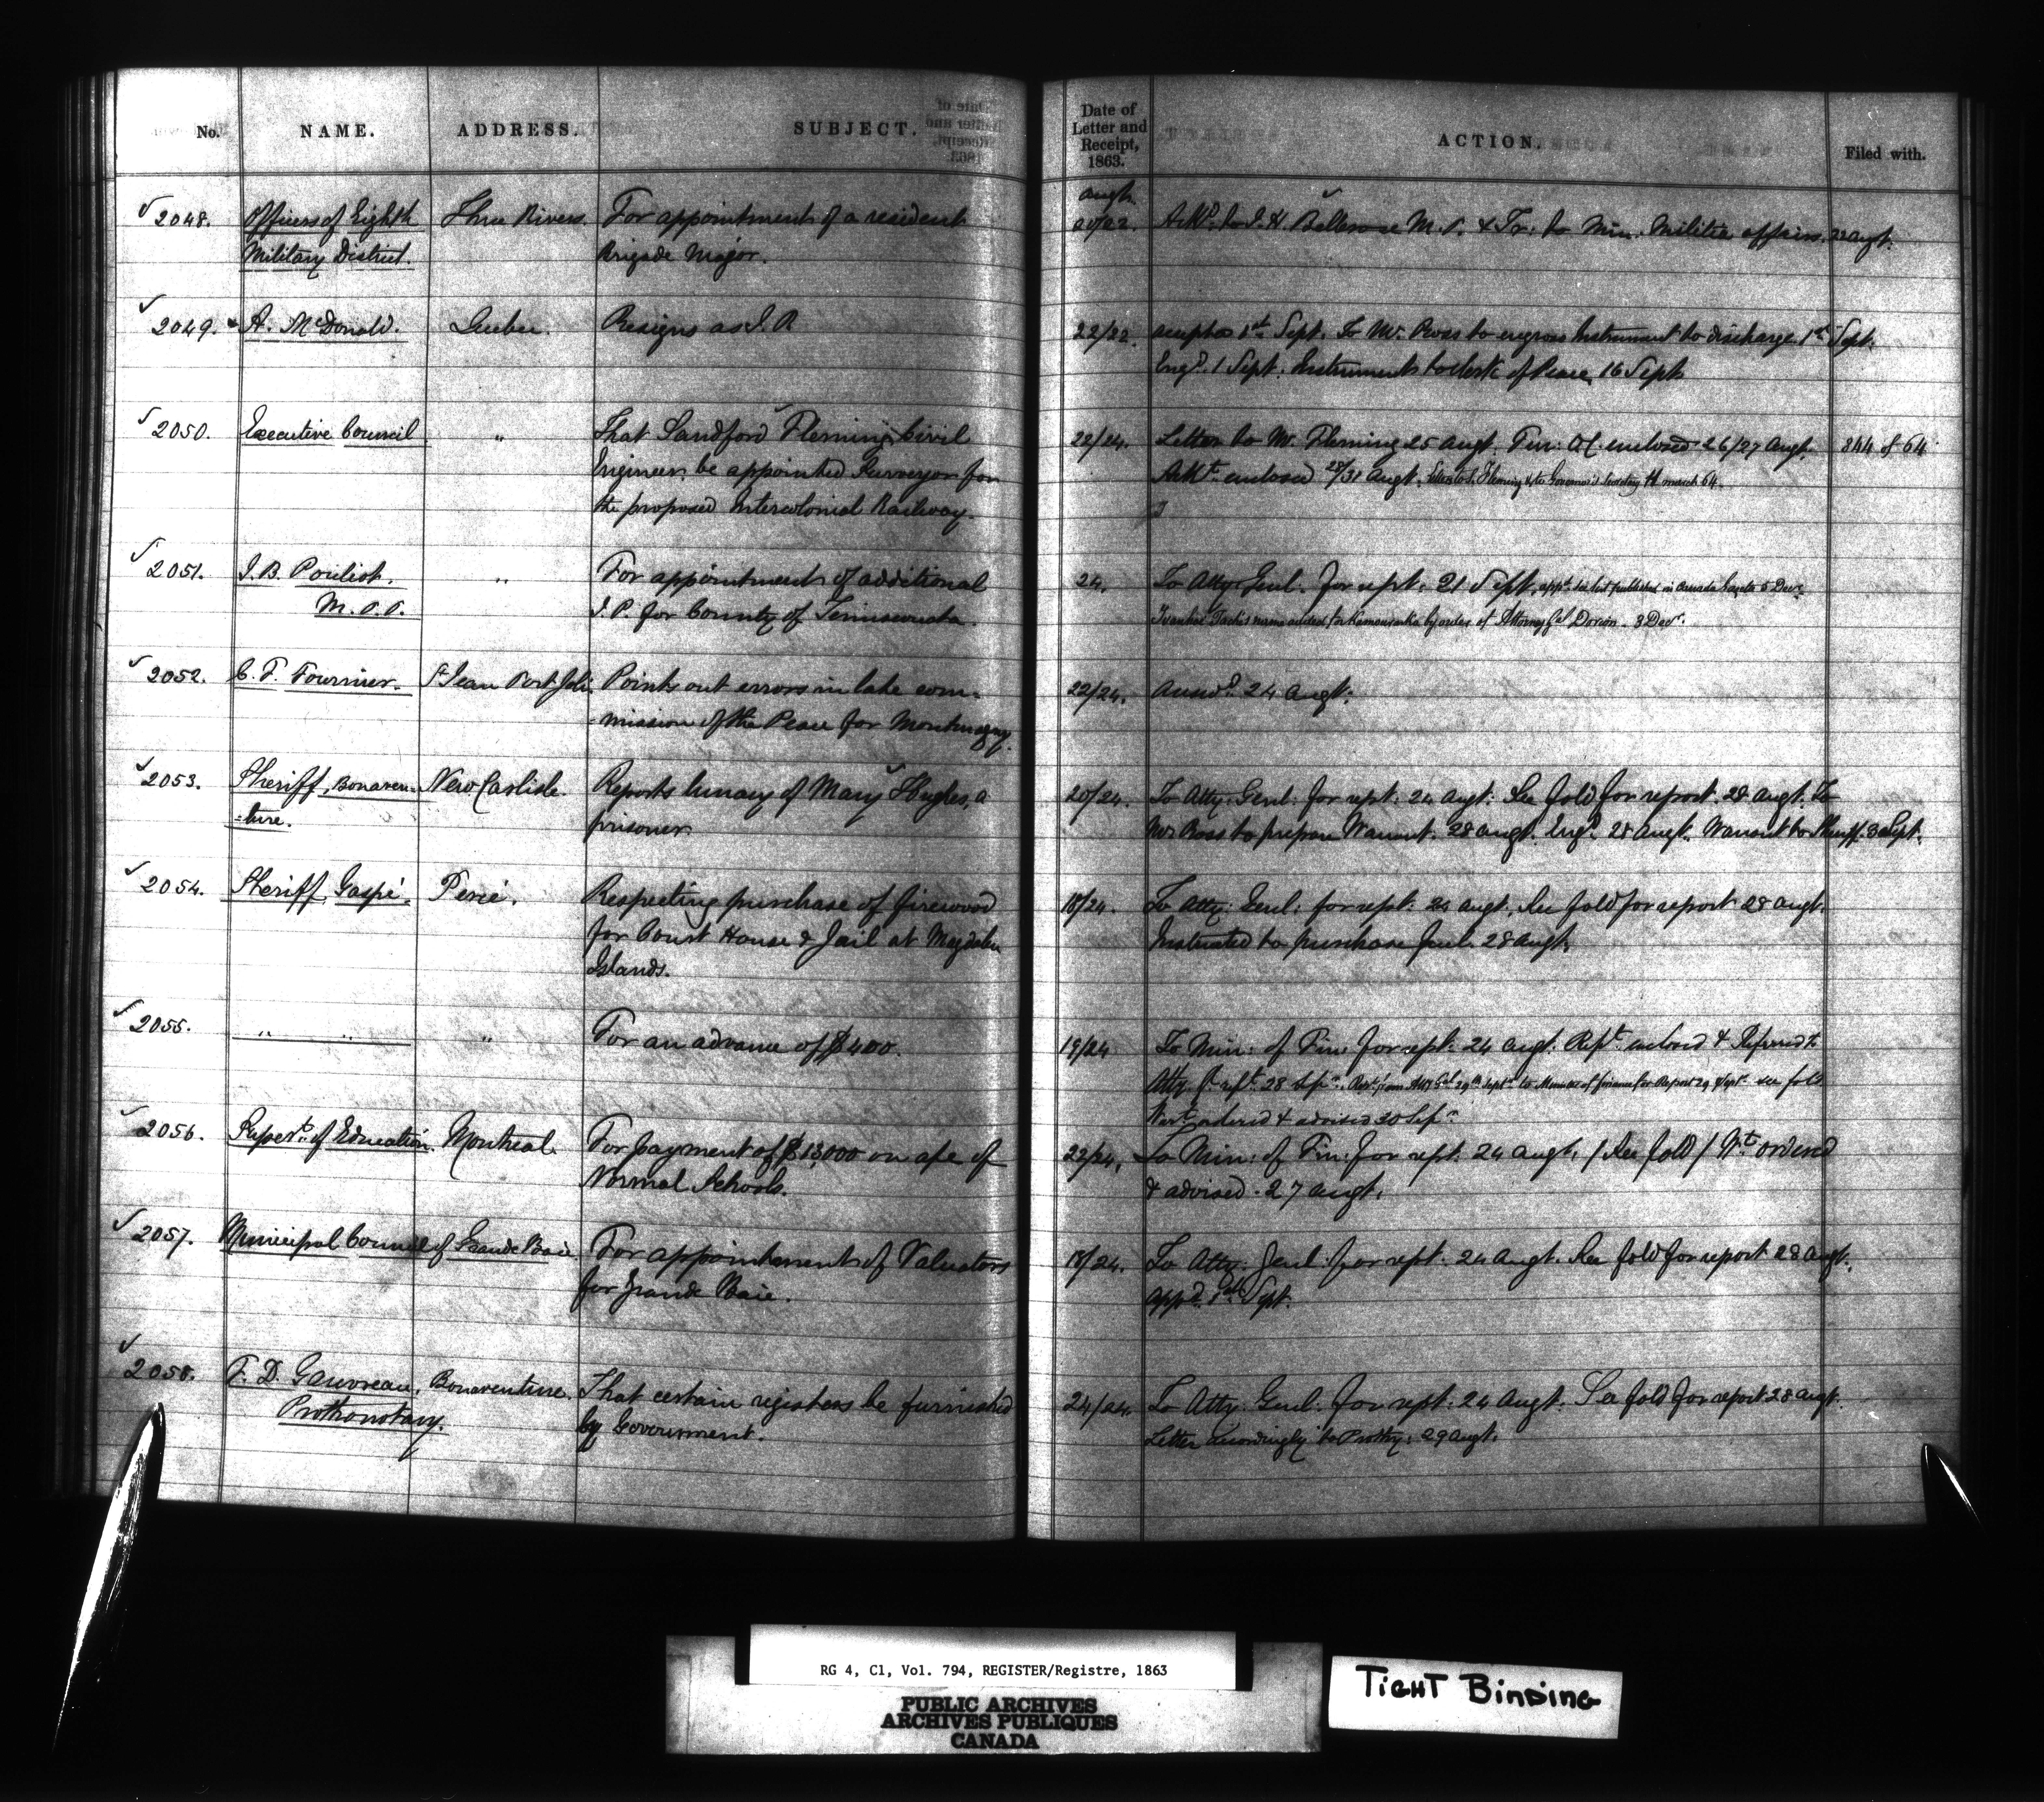 No. NAME. ADDRESS. SUBJECT.
Date of Letter and Receipt, 1863. ACTION. Filed with.
Augt.
2048. Officers of Eighth Three Rivers. For appointment of a resident
Military District. Brigade Major.
20/22. Ackd. to J. H. Bellerose M.P. & Tr: to Min: Militia affairs. 22 augt.
2049. A. McDonald. Quebec. Resigns as J. P.
22/22. accepted 1st Sept. To Mr. Ross to engross Instrument to discharge 1st Sept.
Engd. 1 Sept. Instruments to clerk of Peace 16 Sept.
2050. Executive Council " That Sandford Fleming, Civil
Engineer, be appointed Surveyor for
the proposed Intercolonial Railway.
22/24. Letter to Mr. Fleming 25 augt. Fur: OC. enclosed 26/27 Augt. 844 of 64
enclosed 28/31 Augt. Letter to S. Fleming & to Governor's Secretary 11 march 64.
2051. J. B. Pouliot, " For appointment of additional
M. P. P. J. P. for County of Temiscouata.
24. To Atty. Genl. for rept. 21 Sept. appt. list published in Canada Gazette 5 Decr.
Taché's name added for Kamouraska by order of Attorney Gl Dorion. 3 Decr.
2052. C. F. Fournier. St Jean Port Joli. Points out errors in late com=
=mission of the Peace for Montmagny.
22/24. Answd. 24 Augt.
2053. Sheriff, Bonaven= New Carlisle. Reports lunacy of Mary Hughes, a
=ture. prisoner.
20/24. To Atty: Genl: for rept: 24 augt: See fold for report. 28 augt. To
Mr Ross to prepare Warrant. 28 augt. Engd. 28 Augt. Warrant to Sheriff. 3 Sept.
2054. Sheriff, Gaspé. Percé. Respecting purchase of firewood
for Court House & Jail at Magdalen
Islands.
18/24. To Atty: Genl: for rept: 24 augt. See fold for report 28 augt.
Instructed to purchase fuel. 28 Augt.
2055. " " " For an advance of $400.
19/24 To Min: of Fin: for rept: 24 augt. Rept. enclosed & Referred to
Atty G. rept. 28 Sepr. Rept. from Atty Gl 29th Septr to Minister of finance for Report 29 Sept. see fold
Wart. ordered & advised 30 Sepr
2056. Supert. of Education. Montreal. For payment of $13,000 on a/c of
Normal Schools.
22/24. To Min: of Fin: for rept: 24 augt. / See fold / Wt. ordered
& advised. 27 augt.
2057. Municipal Council of Grande Baie. For appointment of Valuators
for Grande Baie.
18/24. To Atty: Genl: for rept: 24 Augt. See fold for report 28 augt.
appd. 1st Sept.
2058. F. D. Gauvreau, Bonaventure. That certain registers be furnished
Prothonotary. by Government.
24/24. To Atty: Genl: for rept: 24 Augt. See fold for report 28 augt.
Letter accordingly to Prothy: 29 Augt.
RG 4, C1, Vol. 794, REGISTER/Registre, 1863
PUBLIC ARCHIVES
ARCHIVES PUBLIQUES
CANADA
TIGHT BINDING